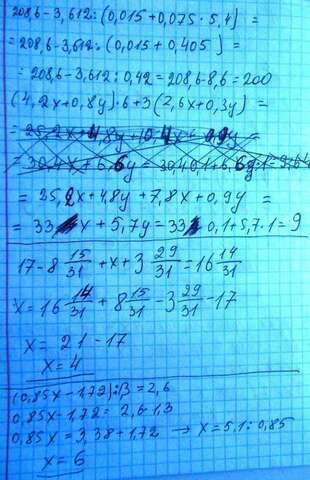 208,6-3,612:(0,015+0,075·5,4) =
= 208,6-3,612:(0,015+0,405) =
= 208,6-3,612:0,42=208,6-8,6=200
(4,2x+0,8y)·6+3(2,6x+0,3y) =
= 25,2x+4,8y+7,8x+0,9y =
= 33x+5,7y=33·0,1+5,7·1=9
17-8 15/31 +x+3 29/31 =16 14/31
x=16 14/31 + 8 15/31 -3 29/31 -17
x= 21-17
x=4
(0,85x-1,72):1,3=2,6
0,85x-1,72= 2,6·1,3
0,85x=3,38+1,72 → x=5,1:0,85
x=6